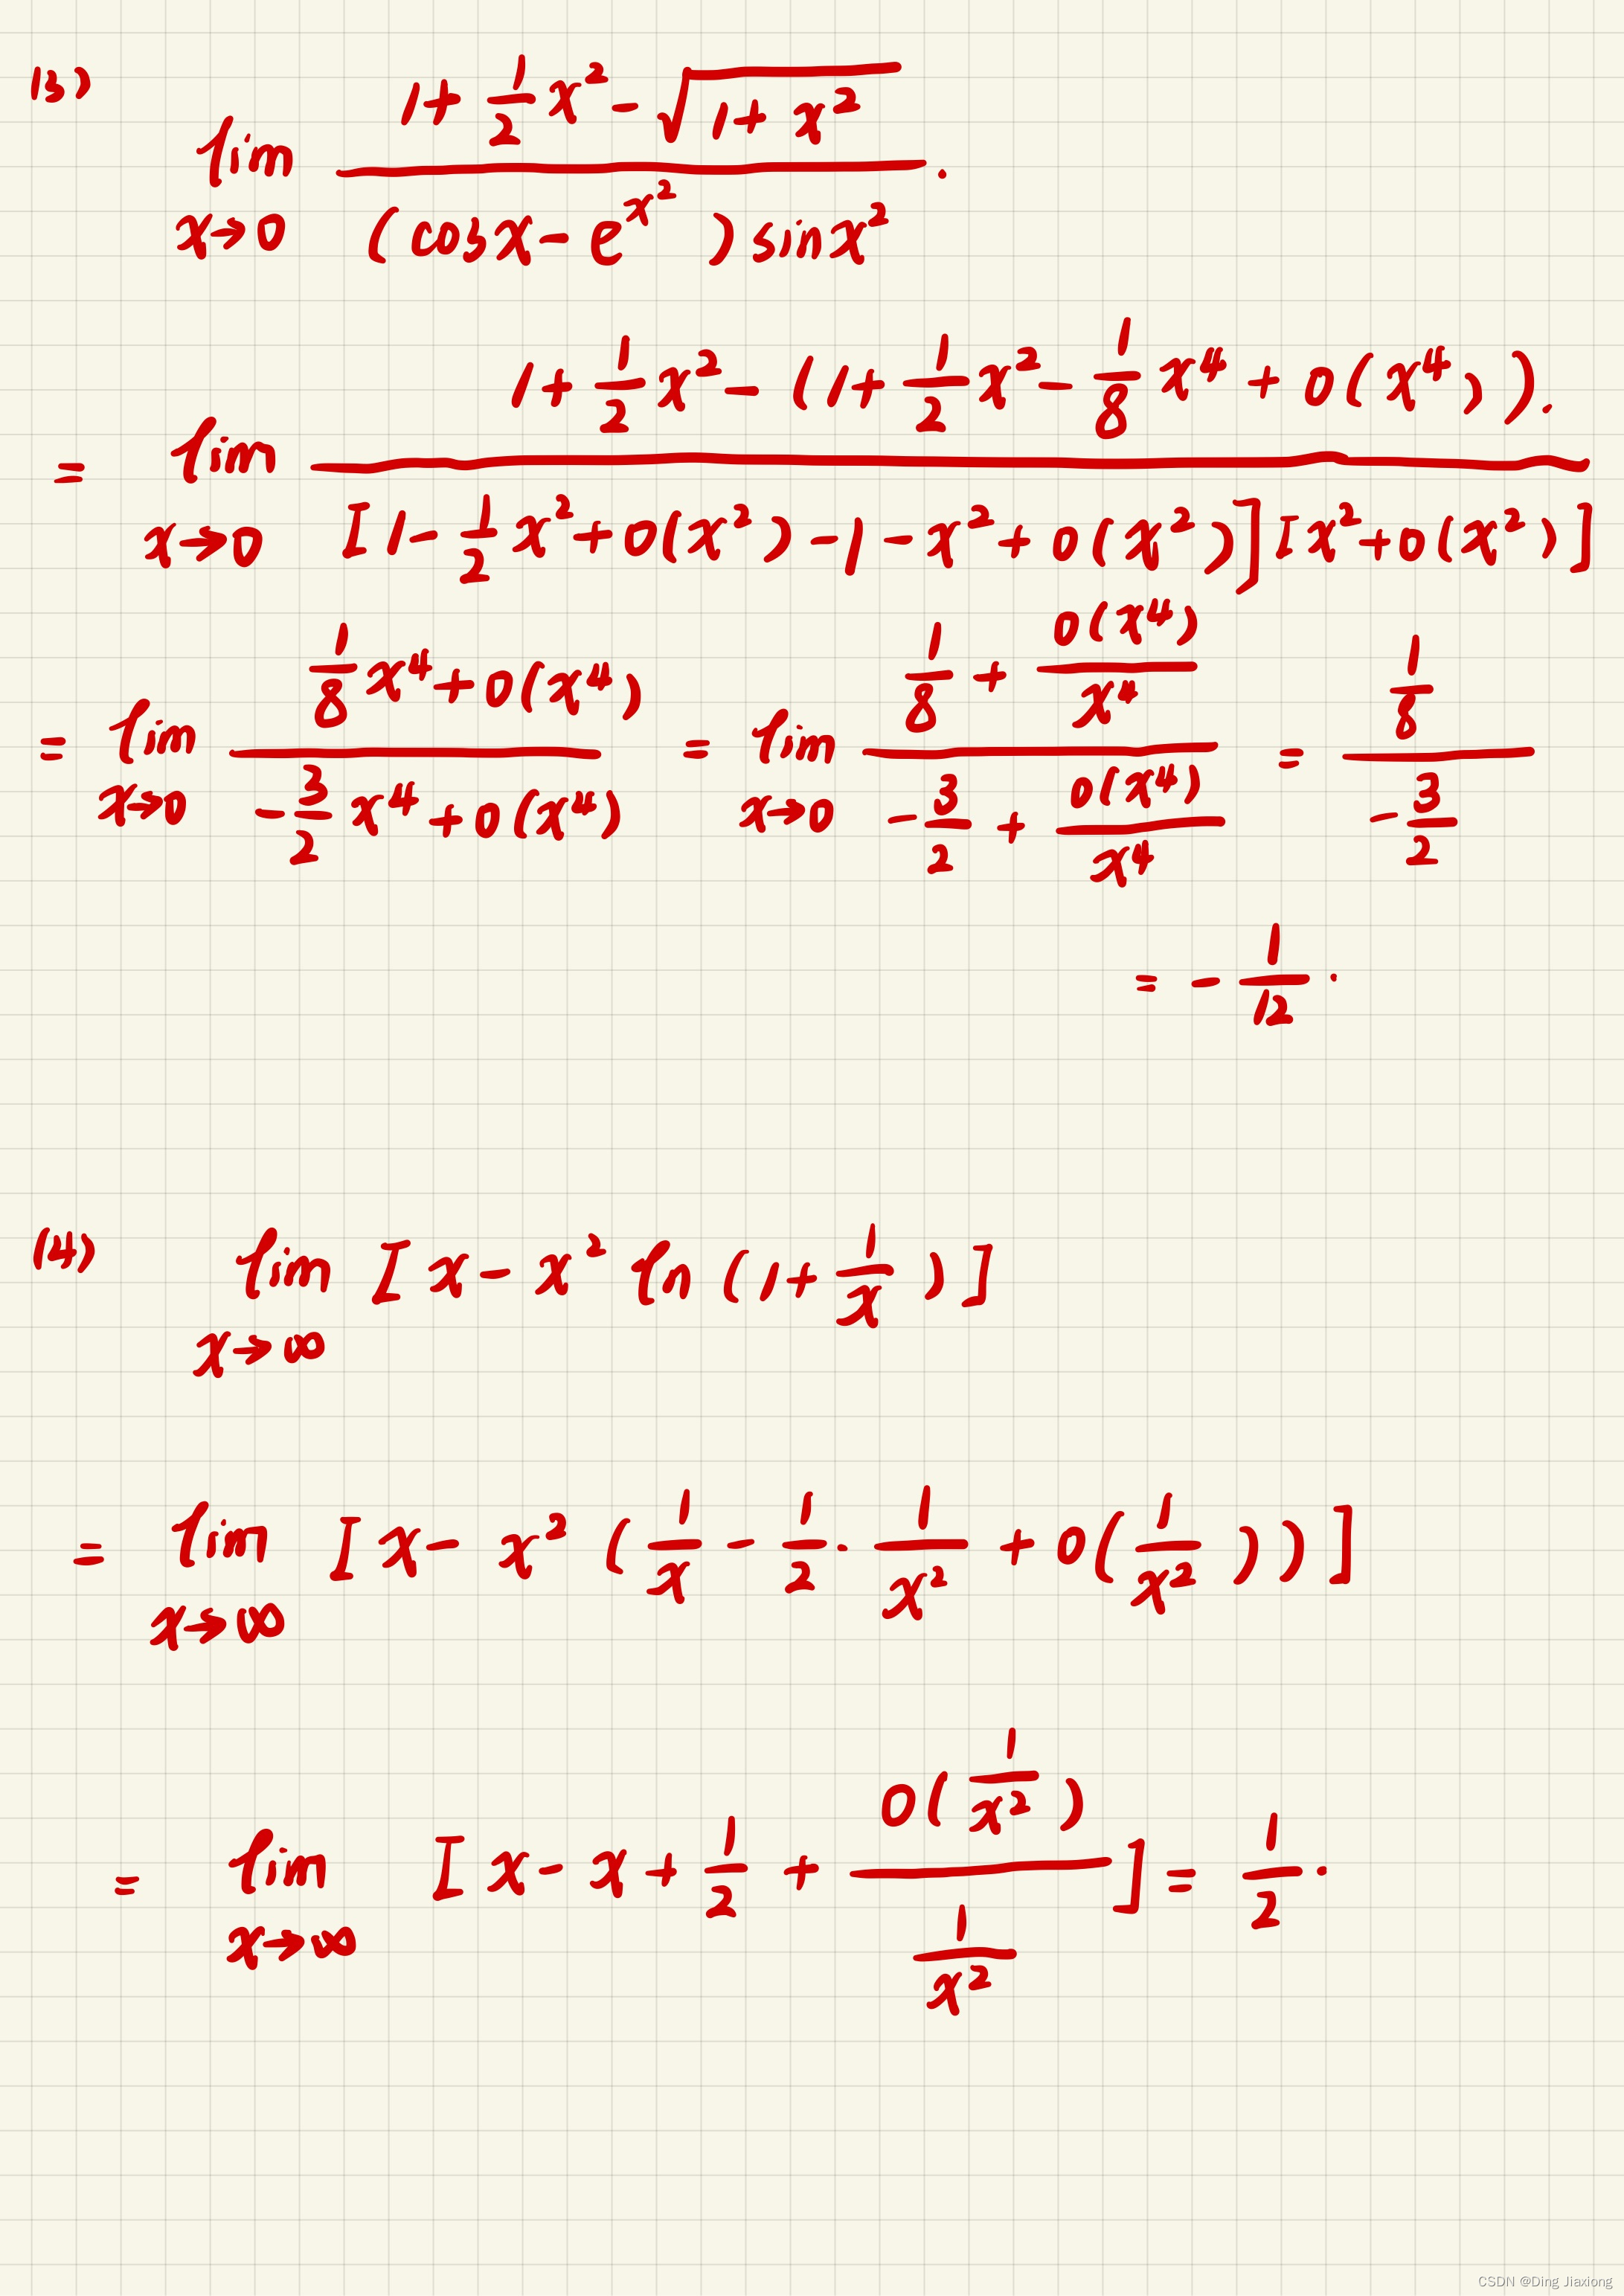 (3) lim_{x→0} \frac{1+\frac{1}{2}x^2-\sqrt{1+x^2}}{(cosx-e^{x^2})sinx^2}.
= lim_{x→0} \frac{1+\frac{1}{2}x^2-(1+\frac{1}{2}x^2-\frac{1}{8}x^4+o(x^4)).}{[1-\frac{1}{2}x^2+o(x^2)-1-x^2+o(x^2)][x^2+o(x^2)]}
= lim_{x→0} \frac{\frac{1}{8}x^4+o(x^4)}{-\frac{3}{2}x^4+o(x^4)} = lim_{x→0} \frac{\frac{1}{8}+\frac{o(x^4)}{x^4}}{-\frac{3}{2}+\frac{o(x^4)}{x^4}} = \frac{\frac{1}{8}}{-\frac{3}{2}}
= -\frac{1}{12}.
(4) lim_{x→∞} [x-x^2 ln(1+\frac{1}{x})]
= lim_{x→∞} [x-x^2(\frac{1}{x}-\frac{1}{2}·\frac{1}{x^2}+o(\frac{1}{x^2}))]
= lim_{x→∞} [x-x+\frac{1}{2}+\frac{o(\frac{1}{x^2})}{\frac{1}{x^2}}] = \frac{1}{2}.
CSDN @Ding Jiaxiong